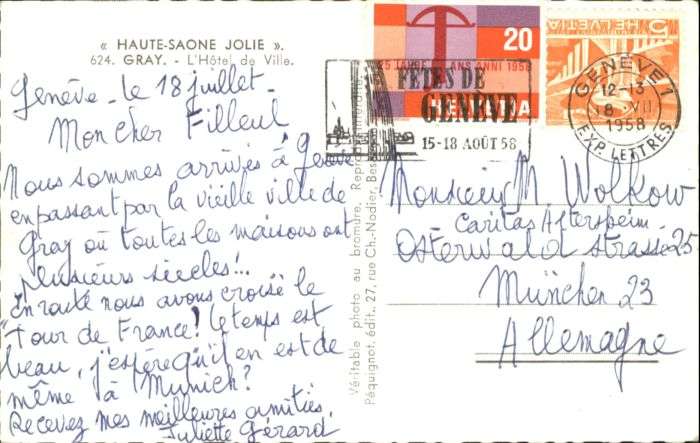 « HAUTE-SAONE JOLIE ».
624. GRAY. - L'Hôtel de Ville.
Genève - le 18 juillet -
Mon cher Filleul
Nous sommes arrivés à Genève
en passant par la vieille ville de
Gray où toutes les maisons ont
plusieurs siècles!..
En route nous avons croisé le
"Tour de France! le temps est
beau, j'espère qu'il en est de
même à Munich?
Recevez mes meilleures amitiés.
Juliette Gérard
Véritable photo au bromure. Reproduction interdite.
Péquignot, édit., 27, rue Ch.-Nodier, Besançon
20
25 ANNI 1958
HELVETIA
5
HELVETIA
FÊTES DE
GENÈVE
15-18 AOÛT 58
GENÈVE 1
12-13
18.VII
1958
EXP. LETTRES
Monsieur M. Wolkow
Caritas Altersheim
Osterwaldstrasse 25
München 23
Allemagne